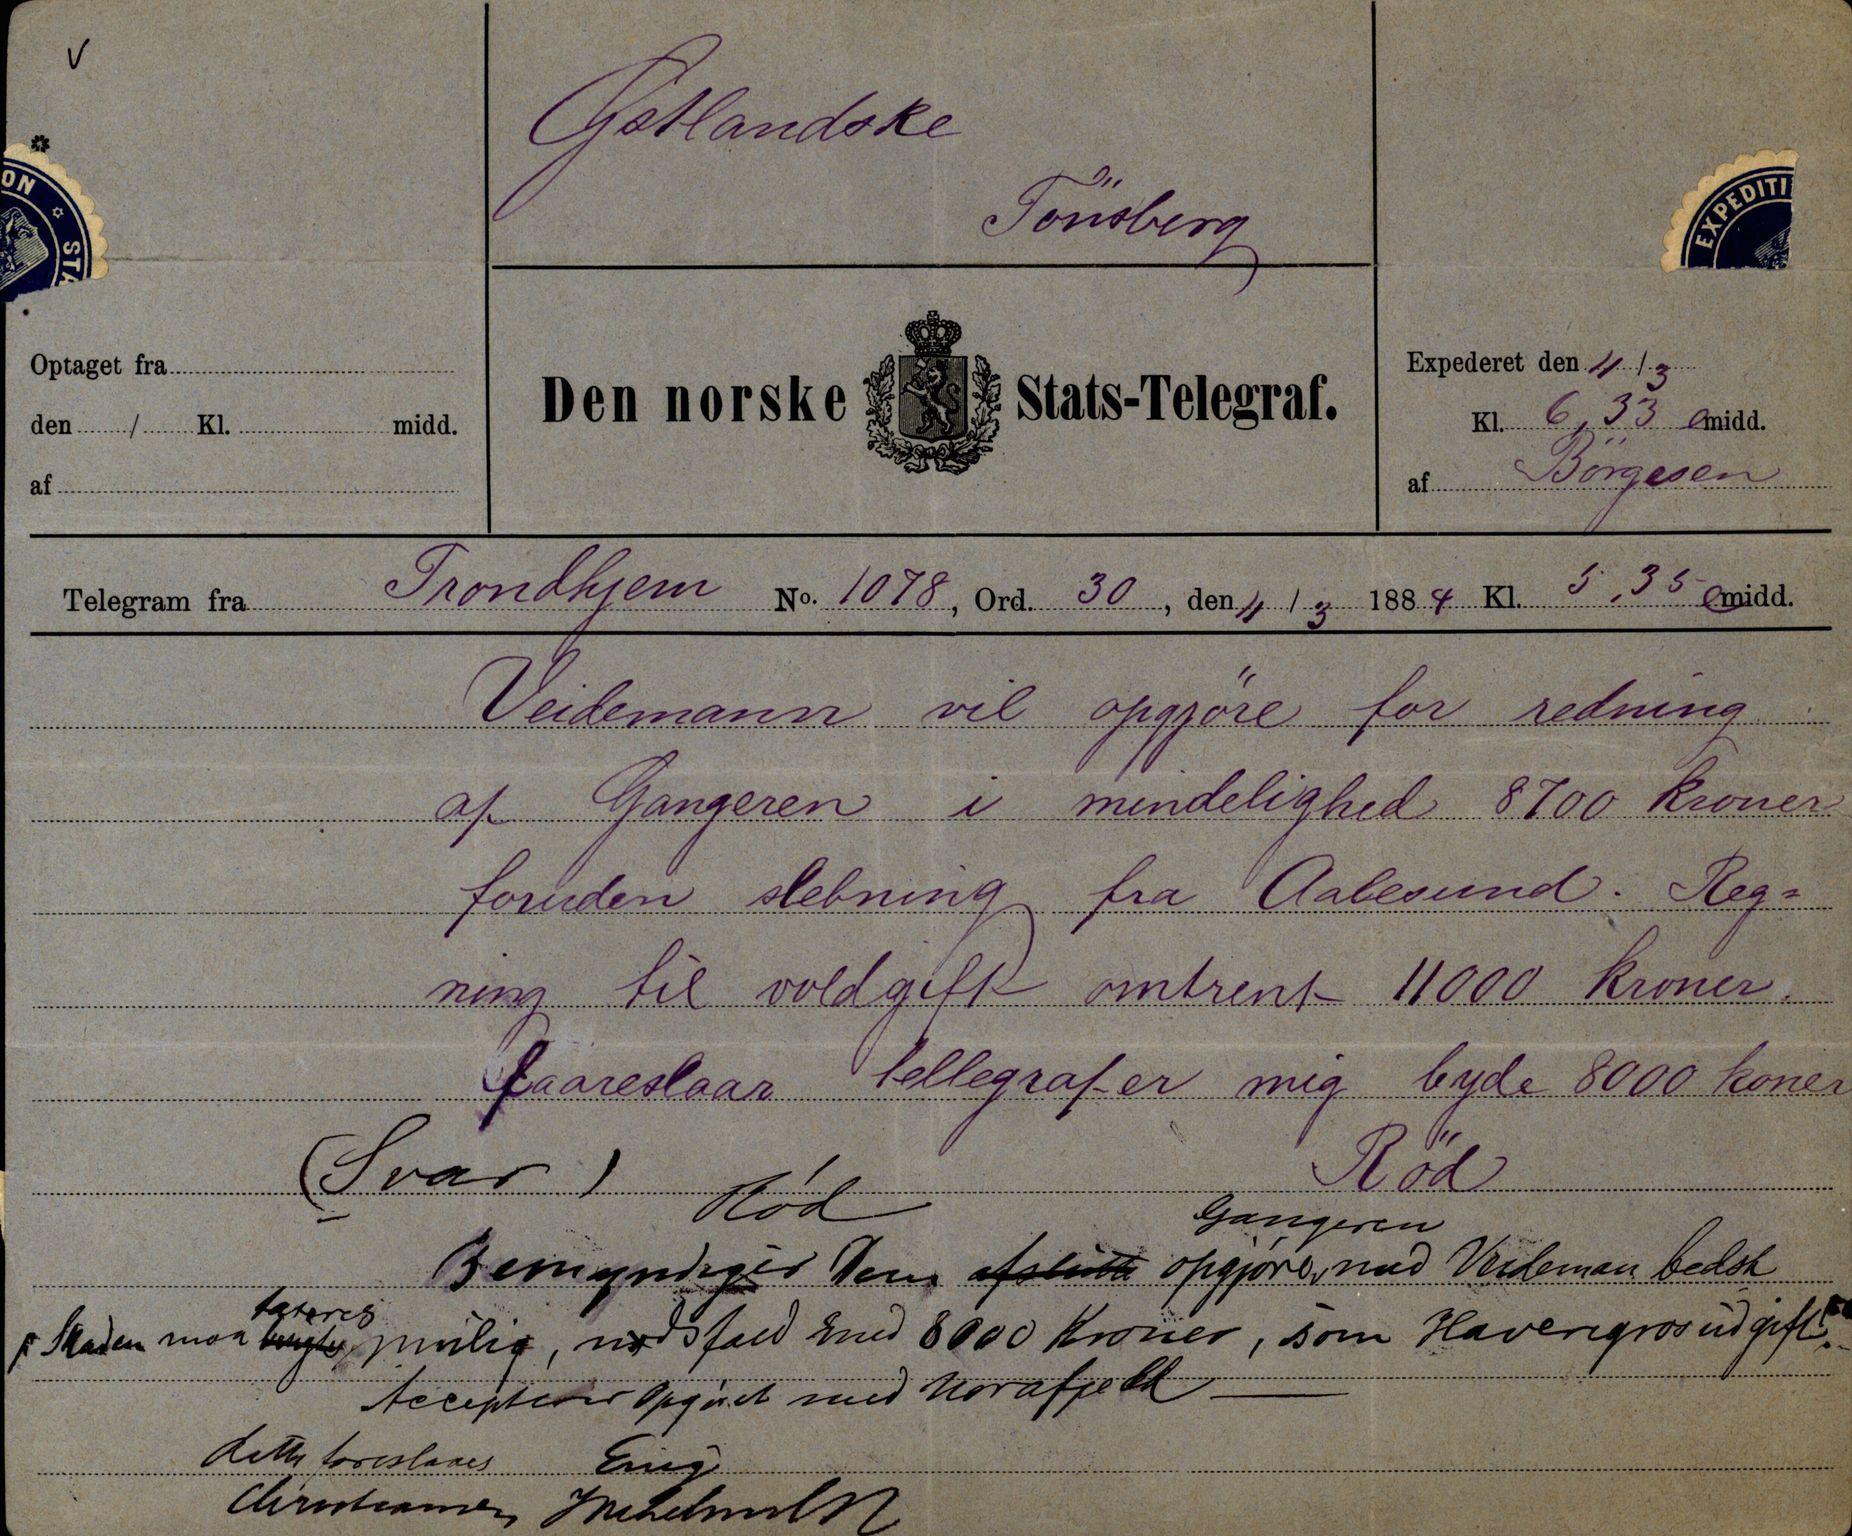 Östlandske
Tönsberg
ON STA
EXPEDITI
Optaget fra
den / Kl. midd.
af
Den norske Stats-Telegraf.
Expederet den 4/3
Kl. 6,33 emidd.
af Börgesen
Telegram fra Trondhjem No. 1078, Ord. 30, den 4/3 1884 Kl. 5,35 emidd.
Veidemann vil opgjöre for redning
af Gangeren i mindelighed 8700 kroner
foruden slebning fra Aalesund. Reg=
ning til voldgift omtrent 11000 kroner.
faareslaar tellegrafer mig byde 8000 koner
Röd
(Svar)
Ród
Gangeren
Bemyndiger Dem afslutte opgjöre, med Veideman bedst
taxeres
Skaden maa mulig, nödsfald med 8000 Kroner, som Haverigrosudgift
Accepterer Opgjöret med Norafjeld
dette foreslaaes Enig
Christiansen